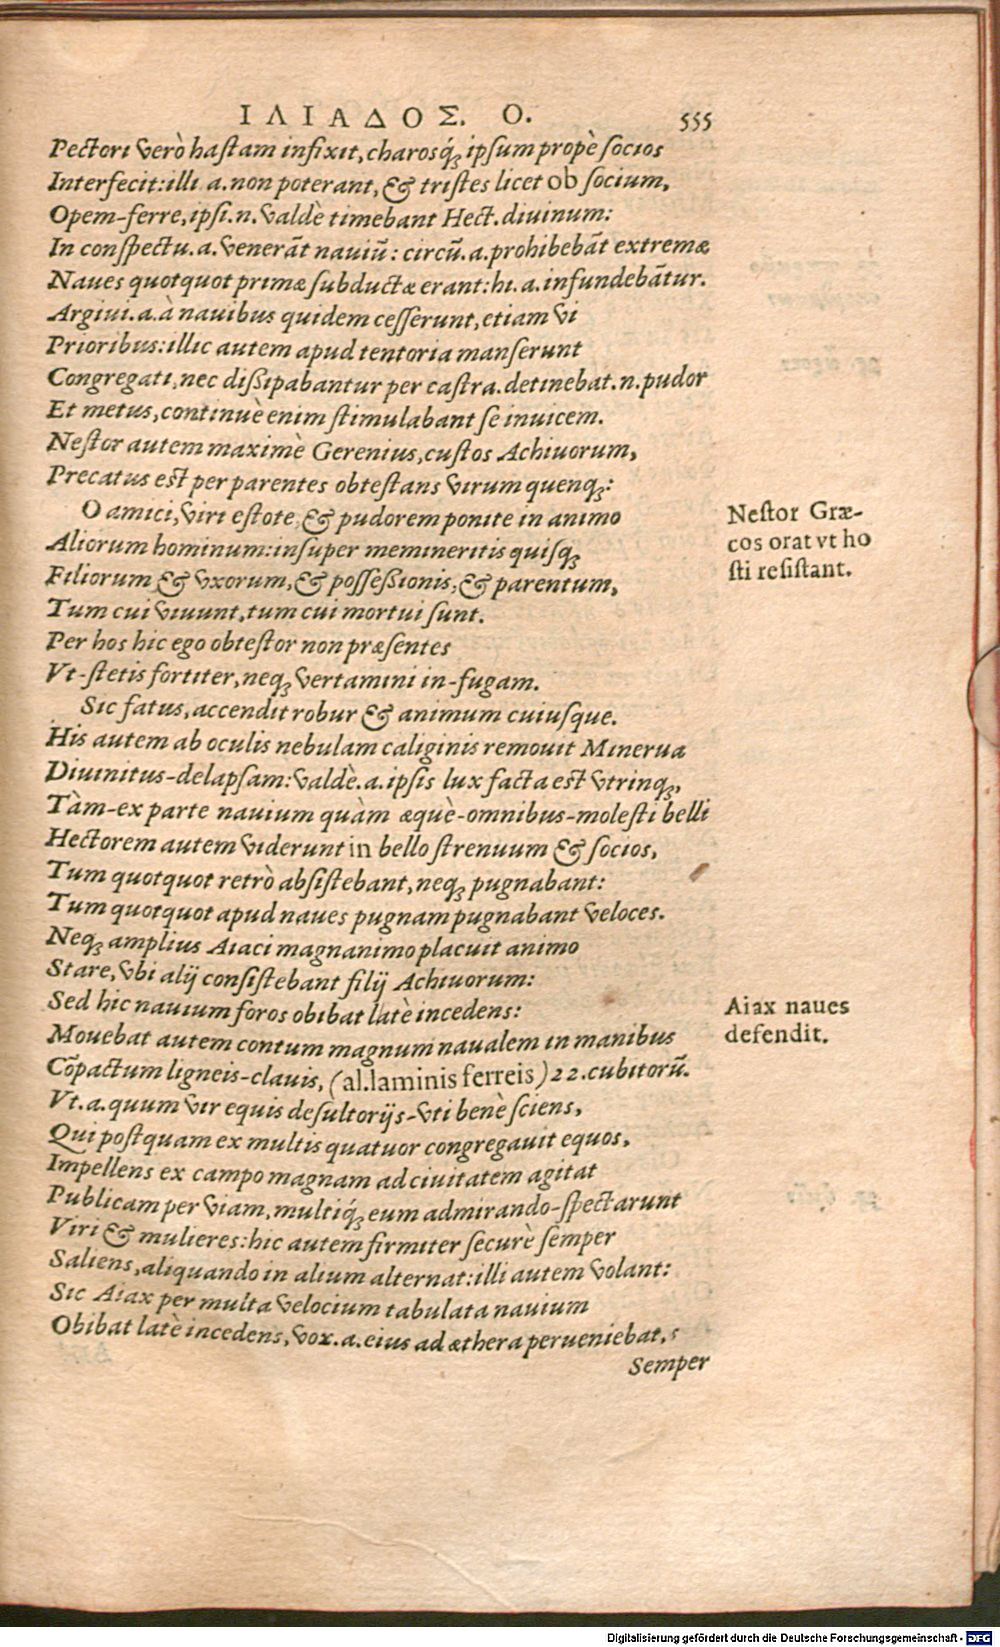 ΙΛΙΑΔΟΣ. Ο. 555
Pectori verò hastam infixit, charosq́; ipsum propè socios
Interfecit: illi .a. non poterant, & tristes licet ob socium,
Opem-ferre, ipsi .n. valdè timebant Hect. diuinum:
In conspectu .a. venerāt nauiū: circū .a. prohibebāt extremæ
Naues quotquot primæ subductæ erant: hi .a. infundebātur.
Argiui .a. à nauibus quidem cesserunt, etiam vi
Prioribus: illic autem apud tentoria manserunt
Congregati, nec dissipabantur per castra. detinebat .n. pudor
Et metus, continuè enim stimulabant se inuicem.
Nestor autem maximè Gerenius, custos Achiuorum,
Precatus est per parentes obtestans virum quenq;:
O amici, viri estote, & pudorem ponite in animo
Aliorum hominum: insuper memineritis quisq;
Filiorum & vxorum, & possessionis, & parentum,
Tum cui viuunt, tum cui mortui sunt.
Per hos hic ego obtestor non præsentes
Vt-stetis fortiter, neq; vertamini in-fugam.
Sic fatus, accendit robur & animum cuiusque.
His autem ab oculis nebulam caliginis remouit Minerua
Diuinitus-delapsam: valdè .a. ipsis lux facta est vtrinq;,
Tàm-ex parte nauium quàm æquè-omnibus-molesti belli
Hectorem autem viderunt in bello strenuum & socios,
Tum quotquot retrò absistebant, neq; pugnabant:
Tum quotquot apud naues pugnam pugnabant veloces.
Neq; amplius Aiaci magnanimo placuit animo
Stare, vbi alij consistebant filij Achiuorum:
Sed hic nauium foros obibat latè incedens:
Mouebat autem contum magnum naualem in manibus
Cōpactum ligneis-clauis, (al. laminis ferreis) 22. cubitorū.
Vt .a. quum vir equis desultorijs-vti benè sciens,
Qui postquam ex multis quatuor congregauit equos,
Impellens ex campo magnam ad ciuitatem agitat
Publicam per viam, multiq́; eum admirando-spectarunt
Viri & mulieres: hic autem firmiter securè semper
Saliens, aliquando in alium alternat: illi autem volant:
Sic Aiax per multa velocium tabulata nauium
Obibat latè incedens, vox .a. eius ad æthera perueniebat,
Semper
Nestor Græ-
cos orat vt ho
sti resistant.
Aiax naues
defendit.
Digitalisierung gefördert durch die Deutsche Forschungsgemeinschaft - DFG